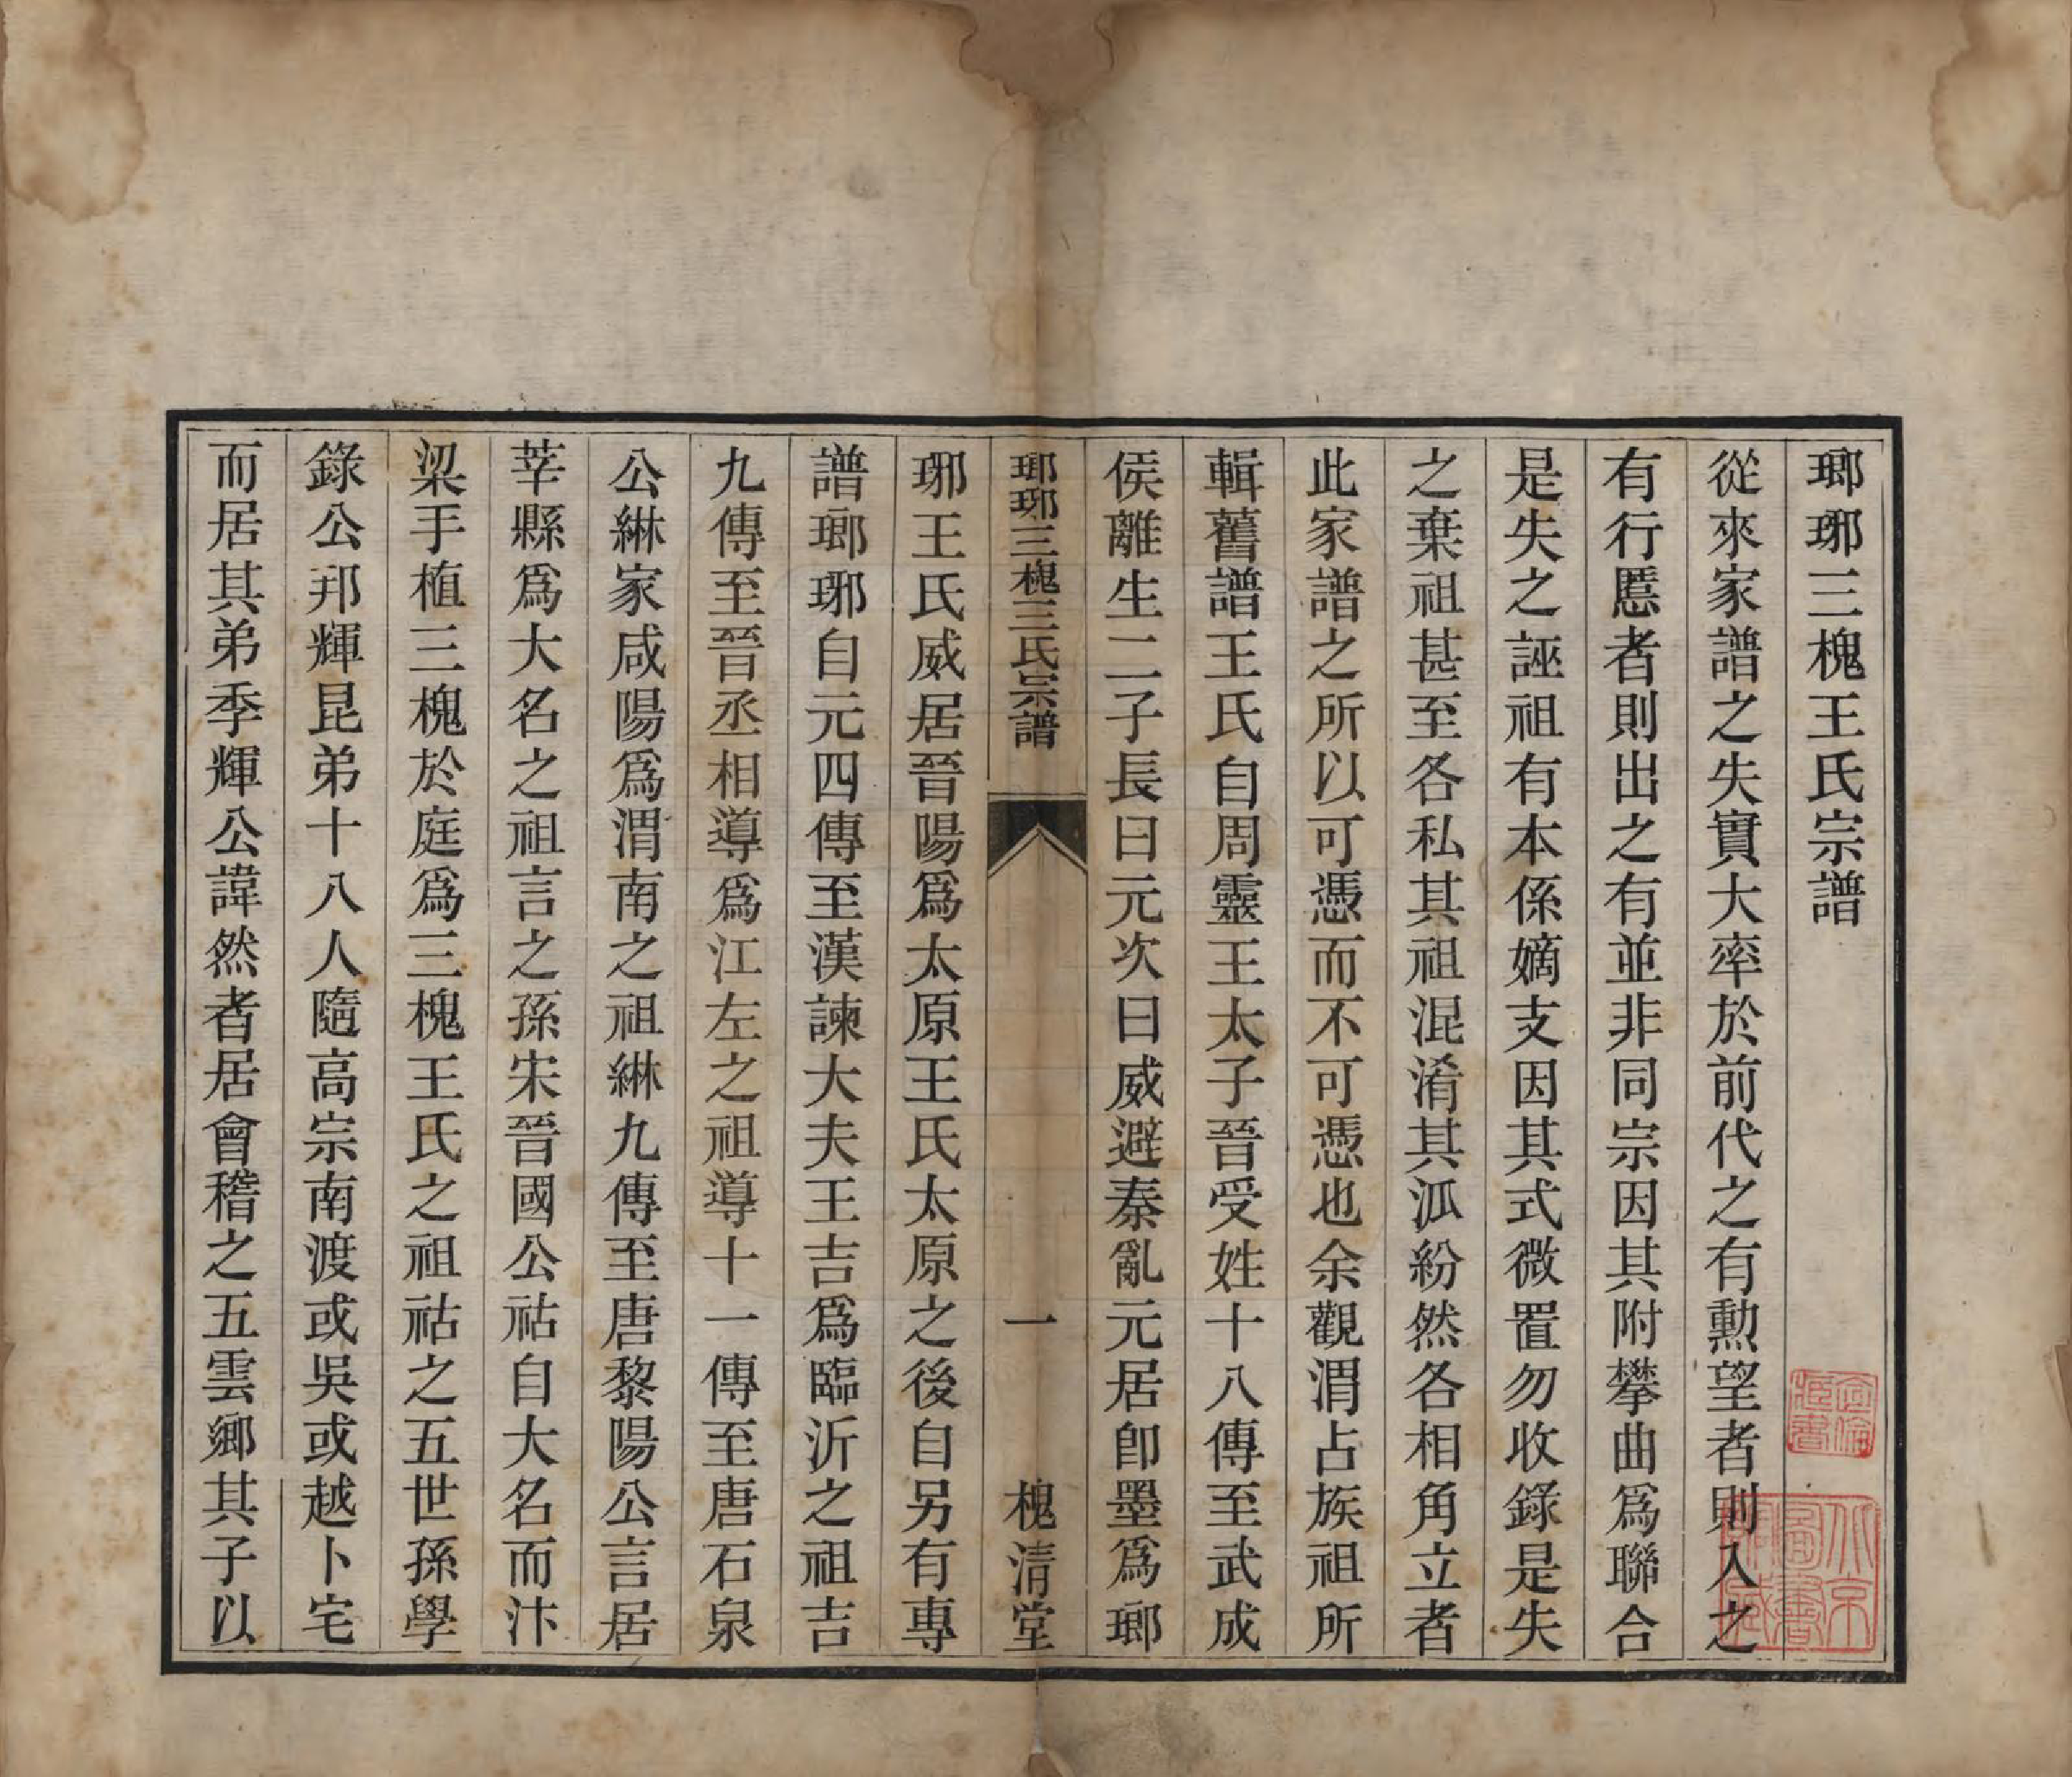 瑯琊三槐王氏宗譜
從來家譜之失實大率於前代之有勲望者則入之
有行慝者則出之有並非同宗因其附攀曲爲聯合
是失之誣祖有本係嫡支因其式微置勿收錄是失
之棄祖甚至各私其祖混淆其派紛然各相角立者
此家譜之所以可憑而不可憑也余觀渭占族祖所
輯舊譜王氏自周靈王太子晉受姓十八傳至武成
侯離生二子長曰元次曰威避秦亂元居卽墨爲瑯
瑯琊三槐王氏宗譜 一 槐清堂
琊王氏威居晉陽爲太原王氏太原之後自另有專
譜瑯琊自元四傳至漢諫大夫王吉爲臨沂之祖吉
九傳至晉丞相導爲江左之祖導十一傳至唐石泉
公綝家咸陽爲渭南之祖綝九傳至唐黎陽公言居
莘縣爲大名之祖言之孫宋晉國公祜自大名而汴
梁手植三槐於庭爲三槐王氏之祖祜之五世孫學
錄公邦輝昆弟十八人隨高宗南渡或吳或越卜宅
而居其弟季輝公諱然者居會稽之五雲鄉其子以
北京圖書館藏